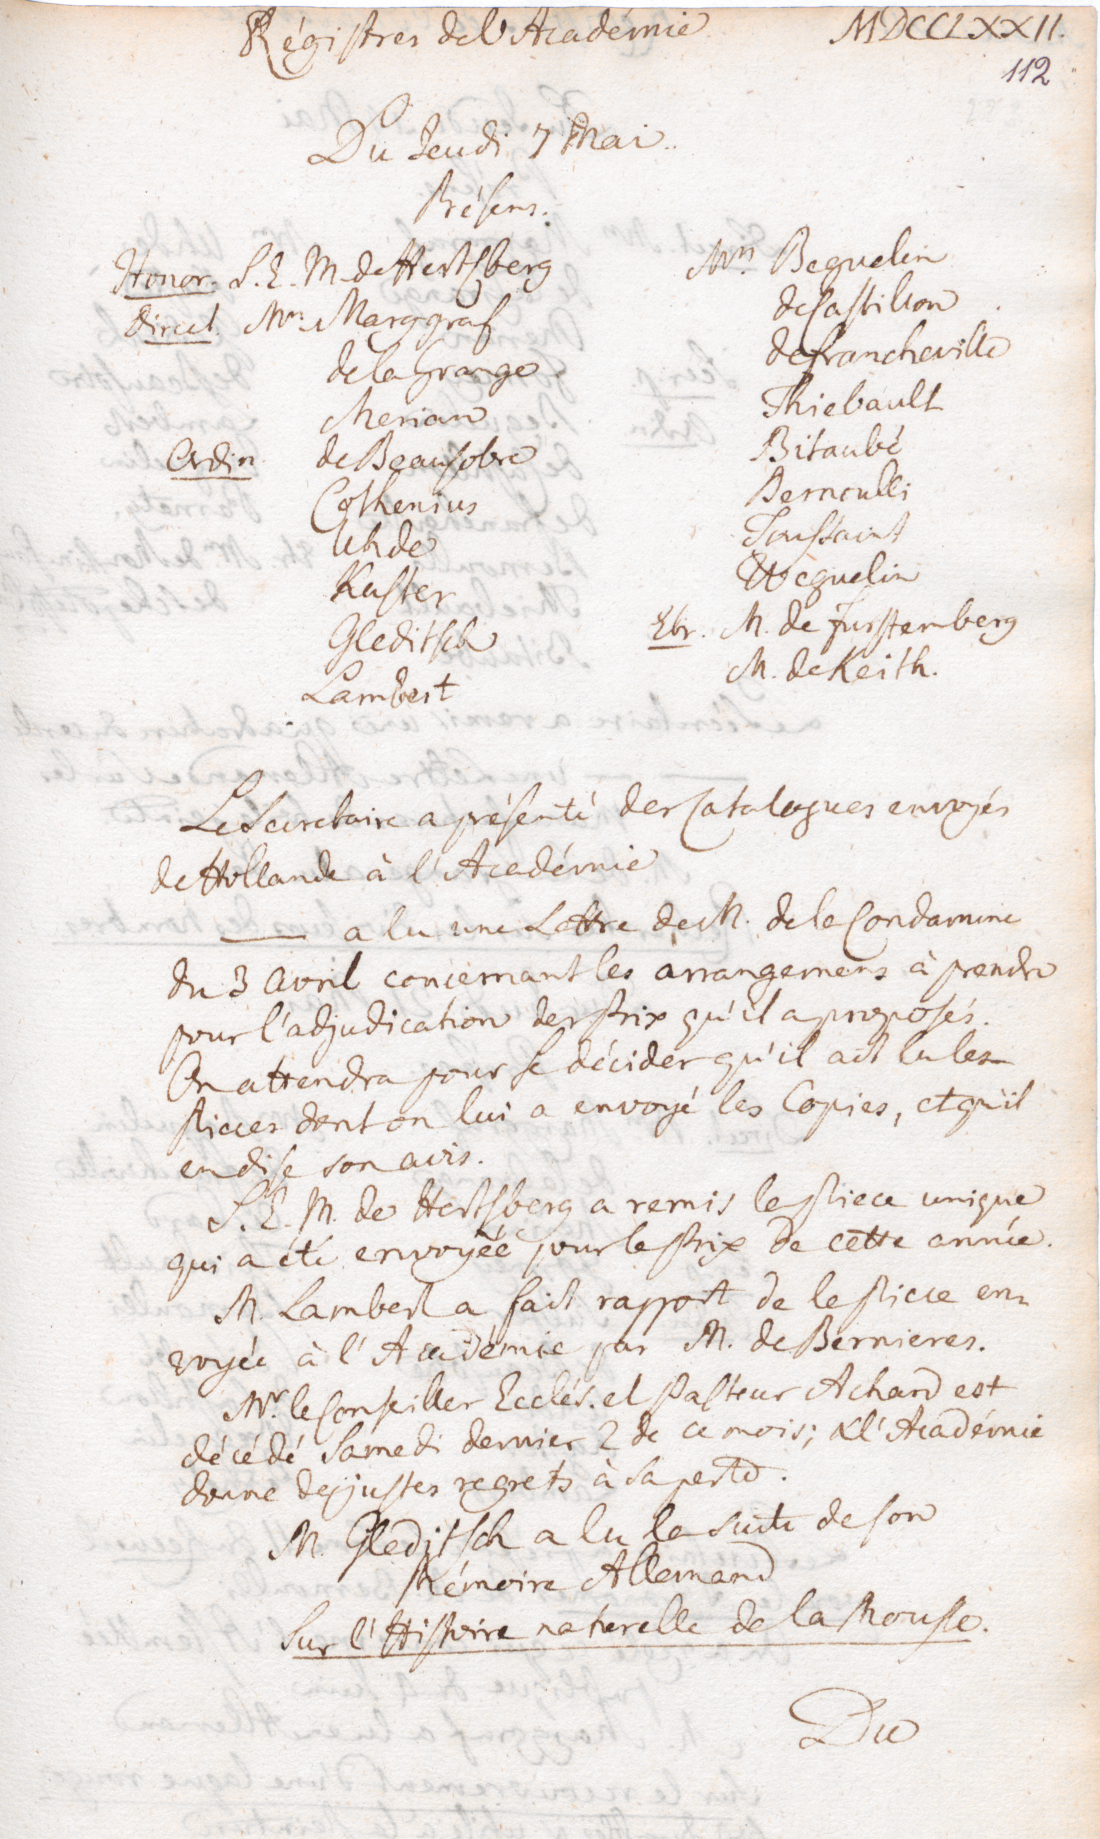 Régistres de l'Académie MDCCLXXII.
112
Du Jeudi 7 Mai.
Présens.
Honor. S. E. M. de Hertsberg
Direct. Mrs. Marggraf
de la Grange
Merian
Ordin. de Beausobre
Cothenius
Uhde
Kuster
Gleditsch
Lambert
Mrs Beguelin
de Castillon
de Francheville
Thiebault
Bitaubé
Bernoulli
Toussaint
Weguelin
Etr. M. de Furstemberg
M. de Keith.
Le Secretaire a présenté des Catalogues envoyés
de Hollande à l'Académie
—— a lu une Lettre de M. de la Condamine
du 3 Avril concernant les arrangemens à prendre
pour l'adjudication des Prix qu'il a proposés.
On attendra pour se décider qu'il ait lu les
Pieces dont on lui a envoyé les Copies, et qu'il
en dise son avis.
S. E. M. de Hertsberg a remis la Piece unique
qui a été envoyée pour le Prix de cette année.
M. Lambert a fait rapport de la Piece en-
voyée à l'Académie par M. de Bernieres.
Mr. le Conseiller Ecclés. et Pasteur Achard est
décédé Samedi dernier 2 de ce mois; & l'Académie
donne des justes regrets à sa perte.
M. Gleditsch a lu la suite de son
Mémoire Allemand
Sur l'Histoire naturelle de la Mousse.
Du